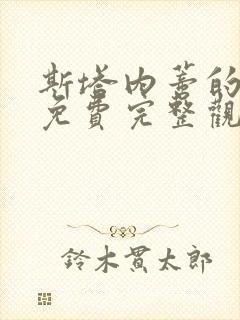 斯塔内蒂的
免費完整觀
鈴木貫太郎